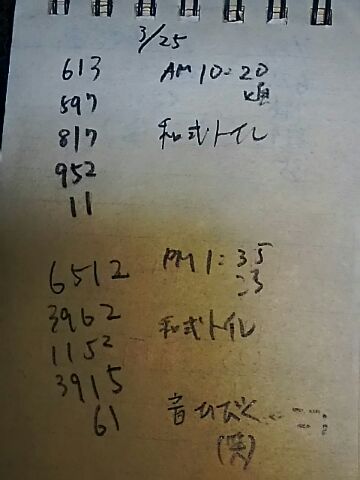 3/25
613 AM 10:20
597
817 和式トイレ
952
11
6512 PM 1:35
23
3962 和式トイレ
1152
3915
61 音ひびく
(笑)